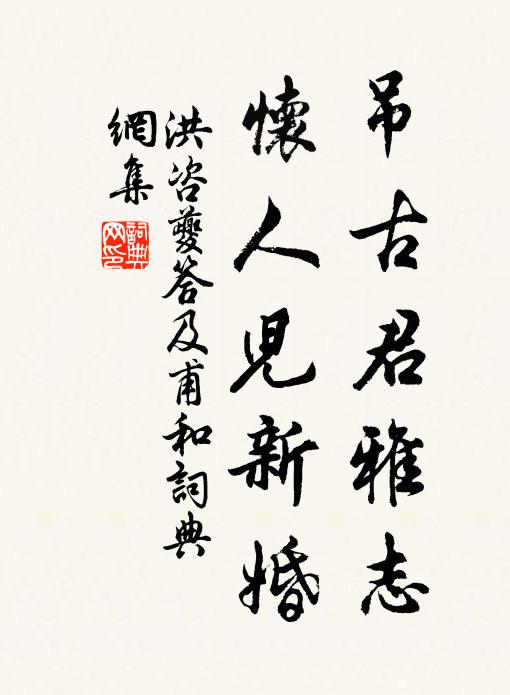 吊古君雅志
懷人児新婚
洪咨夔答及甫和詞典
網集
詞典
网印